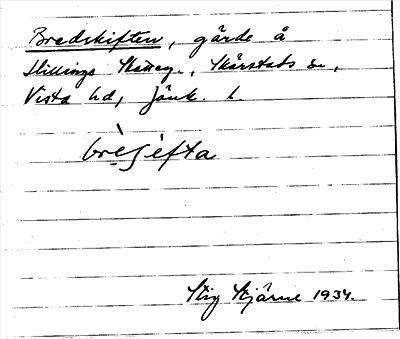 Bredskiften, gärde å
Slillinge Skatteg., Skärstads sn,
Vista hd, Jönk. l.
brèʃèfta
Stig Stjärne 1934.